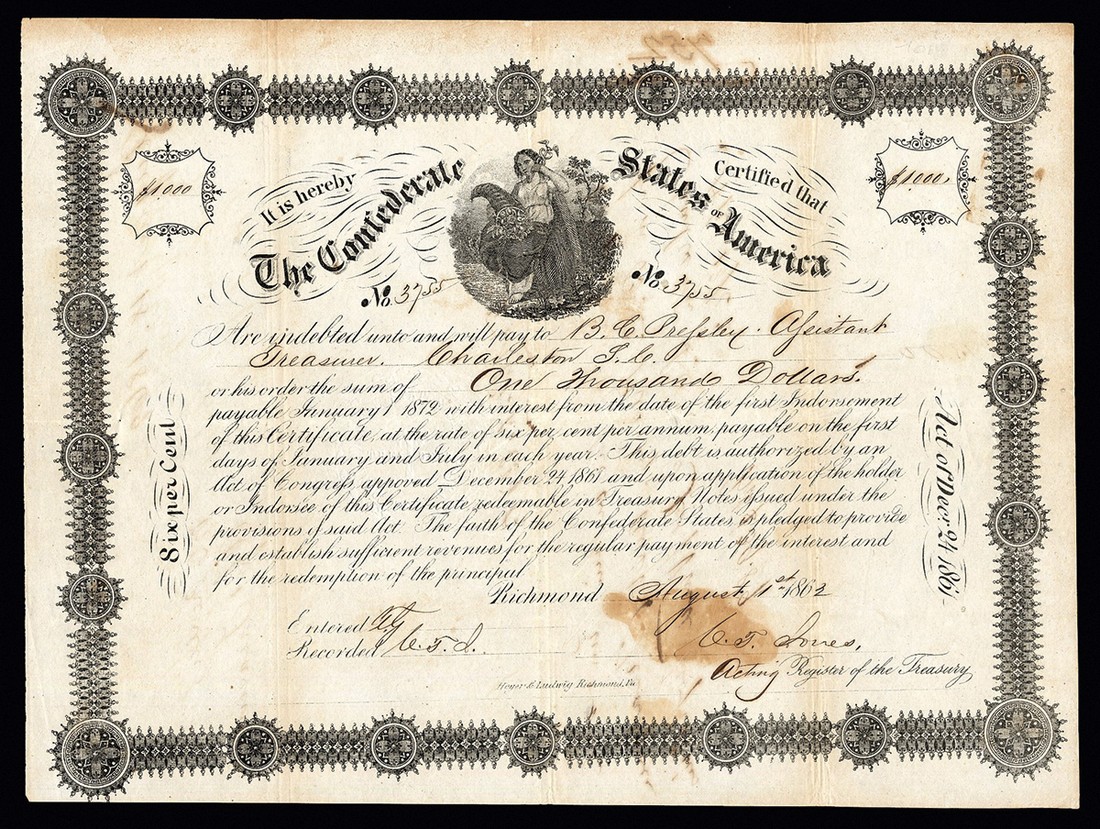 It is hereby Certified that
The Confederate States OF America
$1000
$1000
No. 3755
No. 3755
Are indebted unto and will pay to B. C. Pressley. Assistant
Treasurer. Charleston S. C.
or his order the sum of One Thousand Dollars.
payable January 1 1872 with interest from the date of the first Indorsement
of this Certificate, at the rate of six per cent per annum, payable on the first
days of January and July in each year. This debt is authorized by an
Act of Congress appoved December 24 1861 and upon application of the holder
or Indorsee of this Certificate redeemable in Treasury Notes issued under the
provisions of said Act. The faith of the Confederate States is pledged to provide
and establish sufficient revenues for the regular payment of the interest and
for the redemption of the principal
Richmond August 1st 1862
Entered
Recorded C. T. J.
C. T. Jones,
Acting Register of the Treasury
Hoyer & Ludwig Richmond, Va
Six per Cent
Act of Dec. 24 1861